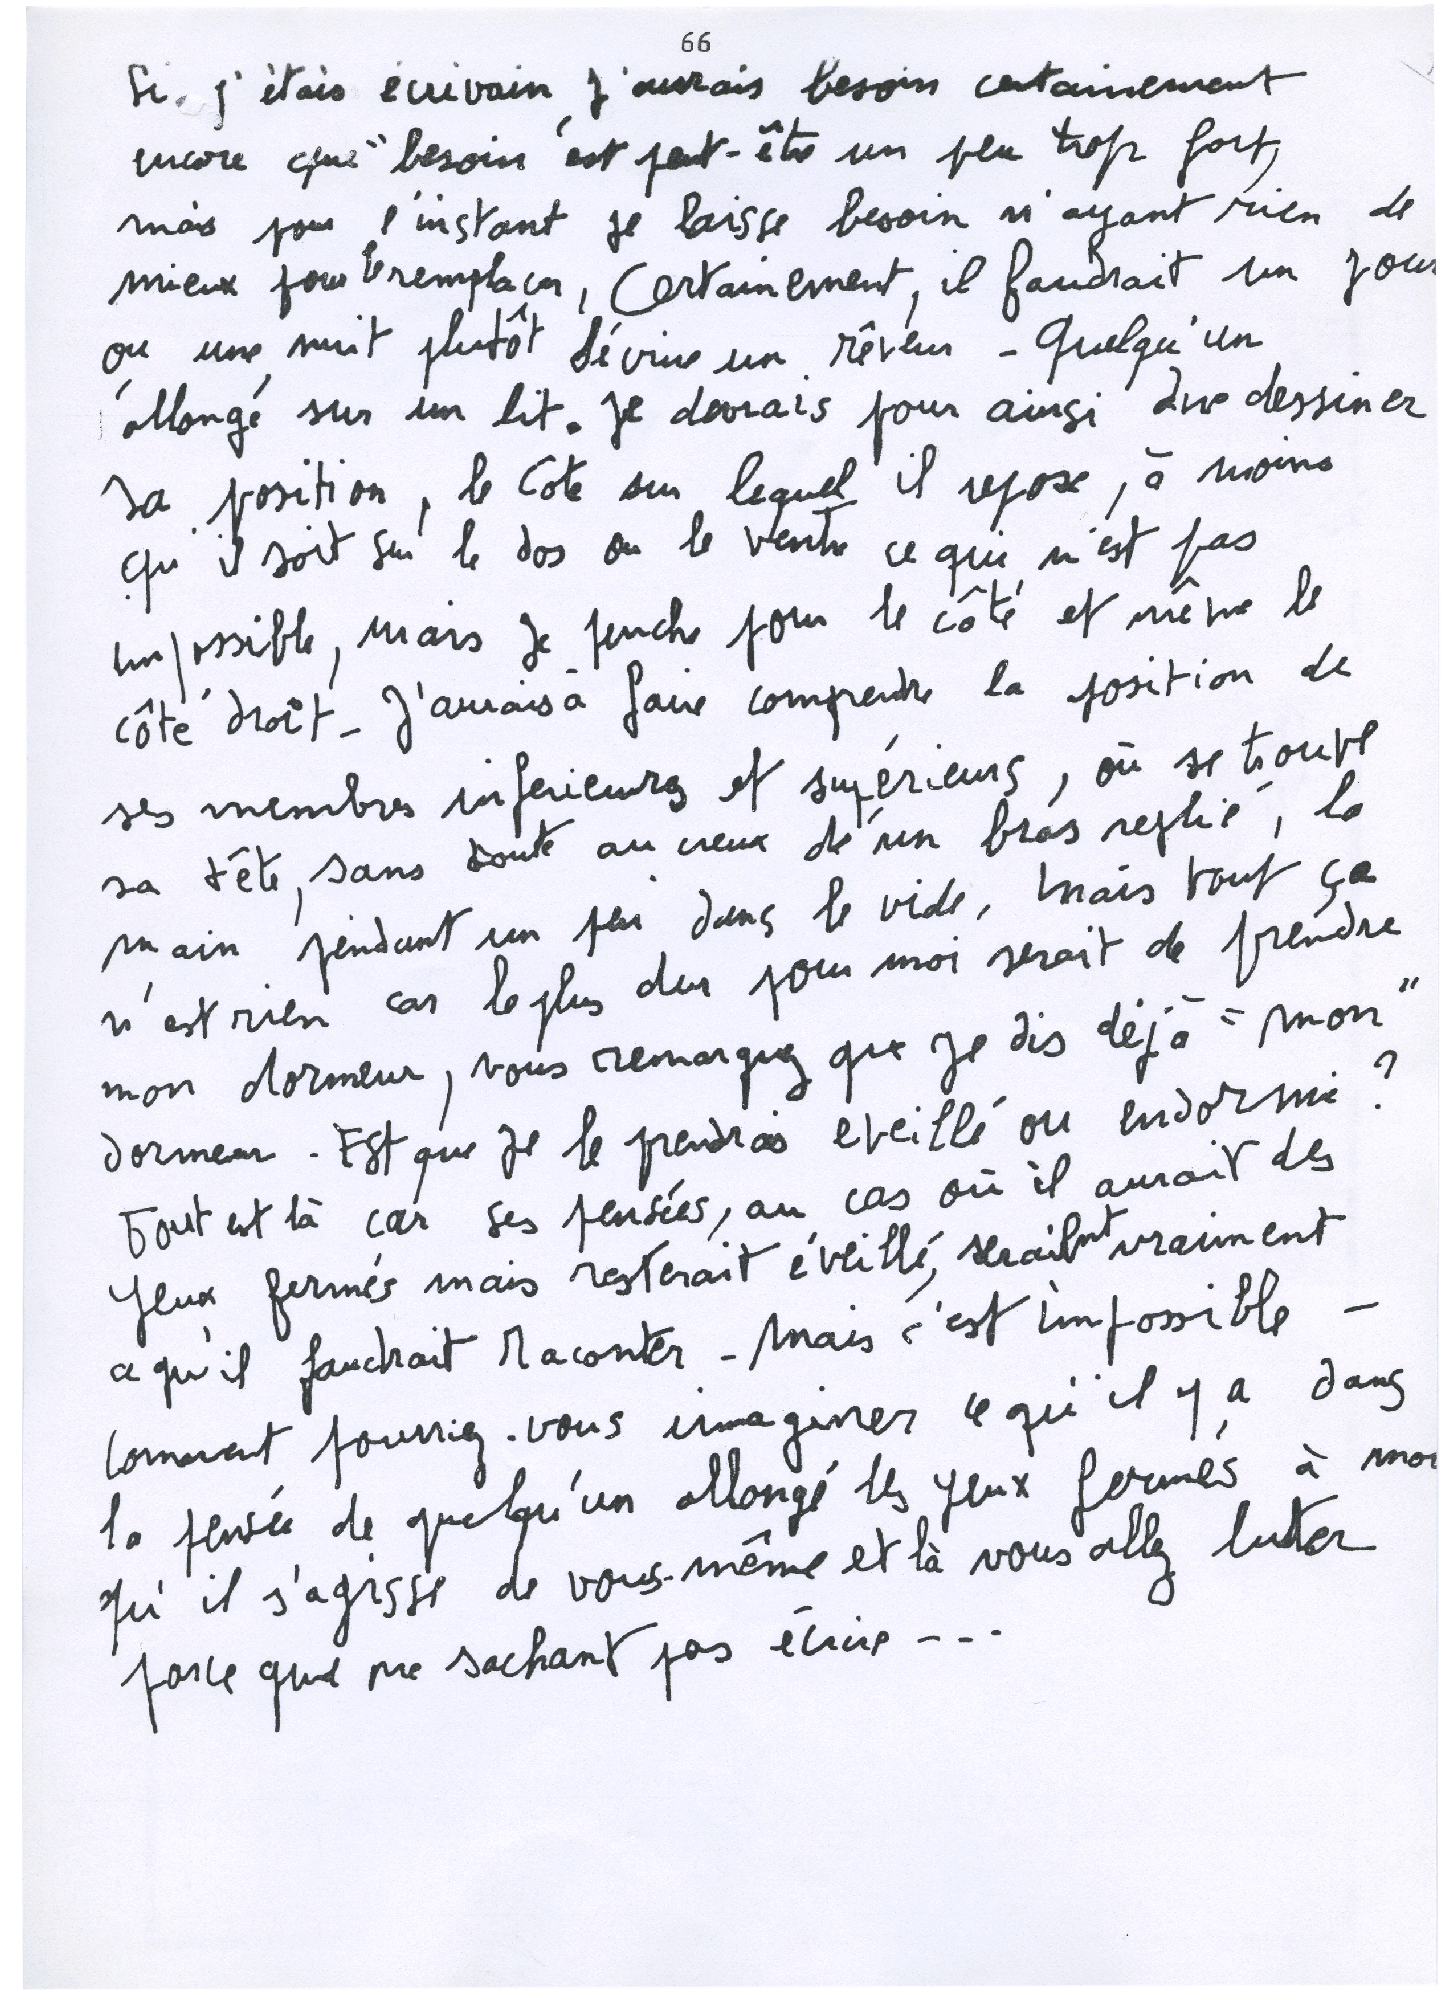 66
Si j'étais écrivain j'aurais besoin certainement
encore que "besoin" est peut-être un peu trop fort,
mais pour l'instant je laisse besoin n'ayant rien de
mieux pour le remplacer, Certainement, il faudrait un jour
ou une nuit plutôt décrire un rêveur - Quelqu'un
allongé sur un lit. Je devrais pour ainsi dire dessiner
sa position, le côté sur lequel il repose, à moins
qu'il soit sur le dos ou le ventre ce qui n'est pas
impossible, mais je penche pour le côté et même le
côté droit - J'aurais à faire comprendre la position de
ses membres inférieurs et supérieurs, où se trouve
sa tête, sans doute au creux de un bras replié, la
main pendant un peu dans le vide, mais tout ça
n'est rien car le plus dur pour moi serait de prendre
mon dormeur, vous remarquez que je dis déjà "mon"
dormeur - Est que je le prendrais eveillé ou endormi ?
Tout est là car ses pensées, au cas où il aurait des
yeux fermés mais resterait éveillé, seraient vraiment
ce qu'il faudrait raconter - Mais c'est impossible -
Comment pourriez-vous imaginer ce qu'il y a dans
la pensée de quelqu'un allongé les yeux fermés à moi
qu'il s'agisse de vous-même et là vous allez lutter
parce que ne sachant pas écrire - - -